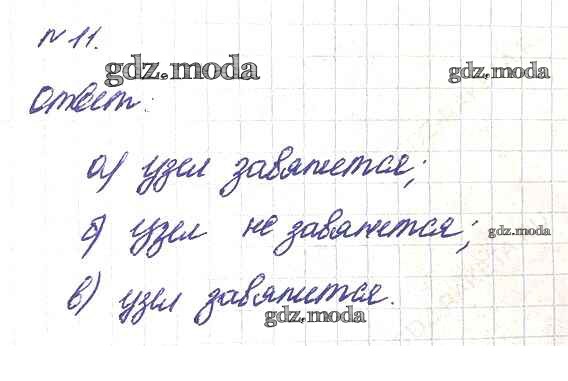 № 11.
gdz.moda
gdz.moda
Ответ:
а) узел завяжется;
б) узел не завяжется;
gdz.moda
в) узел завяжется.
gdz.moda